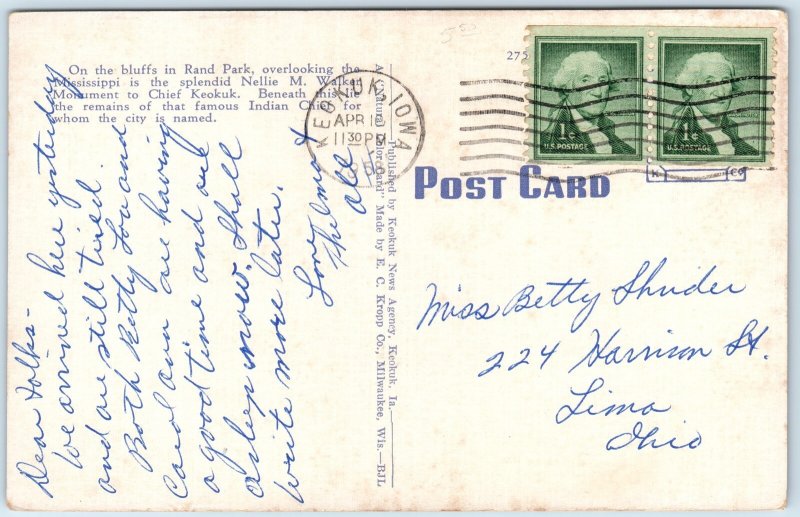 On the bluffs in Rand Park, overlooking the
Mississippi is the splendid Nellie M. Walker
Monument to Chief Keokuk. Beneath this lie
the remains of that famous Indian Chief for
whom the city is named.
Dear Folks-
We arrived here yesterday
and are still tired.
Both Betty Lou and
Carol Ann are having
a good time and are
asleep now. Shall
write more later.
Love,
Thelma &
Al
A "Natural Color Card" Made by E. C. Kropp Co., Milwaukee, Wis.—BJL
Published by Keokuk News Agency, Keokuk, Ia.
KEOKUK, IOWA
APR 18
11 30 PM
275
5 50
1¢
U.S. POSTAGE
1¢
U.S. POSTAGE
K
CO
POST CARD
Miss Betty Shrider
224 Harrison St.
Lima
Ohio